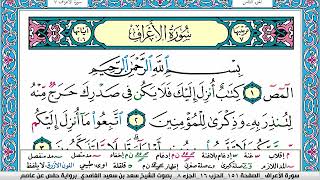 سُورَةُ الأَعْرَافِ
بِسْمِ اللَّهِ الرَّحْمَٰنِ الرَّحِيمِ
الٓمٓصٓ ١ كِتَٰبٌ أُنزِلَ إِلَيْكَ فَلَا يَكُن فِى صَدْرِكَ حَرَجٌ مِّنْهُ
لِتُنذِرَ بِهِۦ وَذِكْرَىٰ لِلْمُؤْمِنِينَ ٢ ٱتَّبِعُوا۟ مَآ أُنزِلَ إِلَيْكُم
سورة الأعراف، الصفحة ١٥١ الحزب ١٦، الجزء ٨ بصوت الشيخ سعد بن سعيد الغامدي. برواية حفص عن عاصم